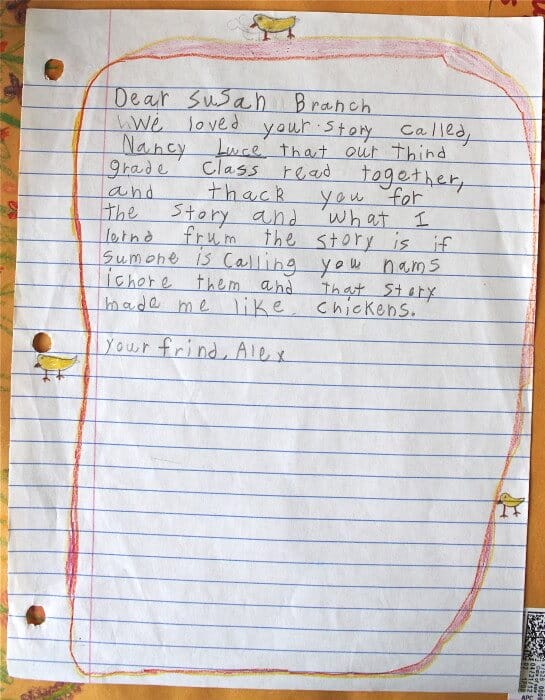 Dear Susan Branch
We loved your story called,
Nancy Luce that our thind
grade class read together,
and thack you for
the story and what I
lernd frum the story is if
sumone is calling you nams
ichore them and that story
made me like chickens.
your frind, Alex